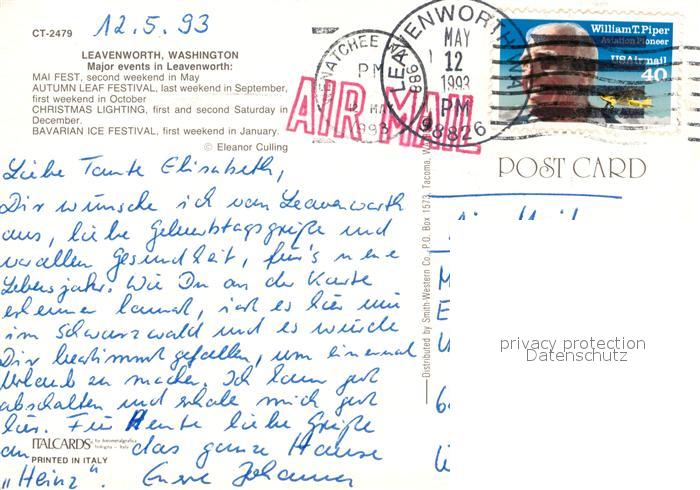 CT-2479
12.5.93
LEAVENWORTH, WASHINGTON
Major events in Leavenworth:
MAI FEST, second weekend in May
AUTUMN LEAF FESTIVAL, last weekend in September,
first weekend in October
CHRISTMAS LIGHTING, first and second Saturday in
December.
BAVARIAN ICE FESTIVAL, first weekend in January.
© Eleanor Culling
WENATCHEE WA 988
PM
12 MAY
1993
LEAVENWORTH WA
MAY
12
1993
PM
98826
AIR MAIL
William T. Piper
Aviation Pioneer
US Airmail
40
POST CARD
Liebe Tante Elisabeth,
Dir wünsche ich von Leavenworth
aus, liebe Geburtstagsgrüße und
vor allen Gesundheit, für's neue
Lebensjahr. Wie Du an der Karte
erkennen kannst, ist es hier wie
im Schwarzwald und es würde
Dir bestimmt gefallen, um einmal
Urlaub zu machen. Ich kann gut
abschalten und erhole mich gut
hier. Für Heute liebe Grüße
an das ganze Hause
"Heinz". Eure Johanna
ITALCARDS by fotometalgrafica
bologna - Italy
PRINTED IN ITALY
Distributed by Smith-Western Co., P.O. Box 1573, Tacoma, WA
privacy protection
Datenschutz